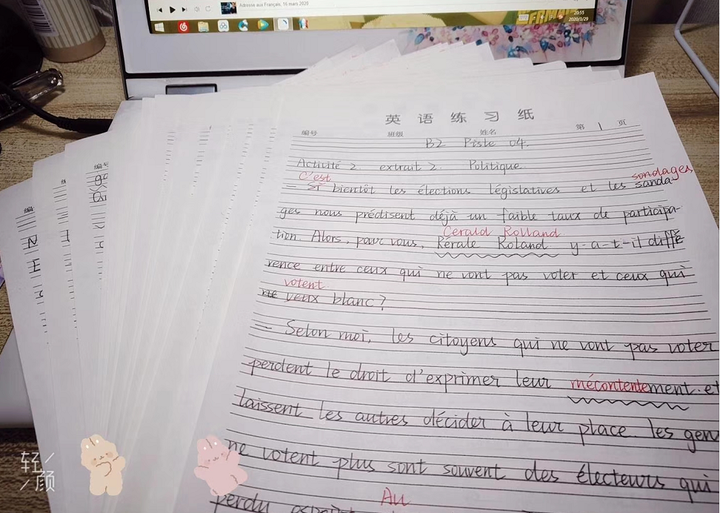 英语练习纸
编号 班级 姓名 第 1 页
B2 Piste 04.
Activité 2 extrait 2. Politique
C'est sondages
— Si bientôt les élections législatives et les sanda-
ges nous prédisent déjà un faible taux de participa-
Gérald Rolland
tion. Alors, pour vous, Kérale Roland y-a-t-il diffé-
rence entre ceux qui ne vont pas voter et ceux qui
votent
ne veux blanc?
— Selon moi, les citoyens qui ne vont pas voter
perdent le droit d'exprimer leur mécontentement et
laissent les autres décider à leur place. Les gens
ne votent plus sont souvent des électeurs qui
Au
perdu
轻颜